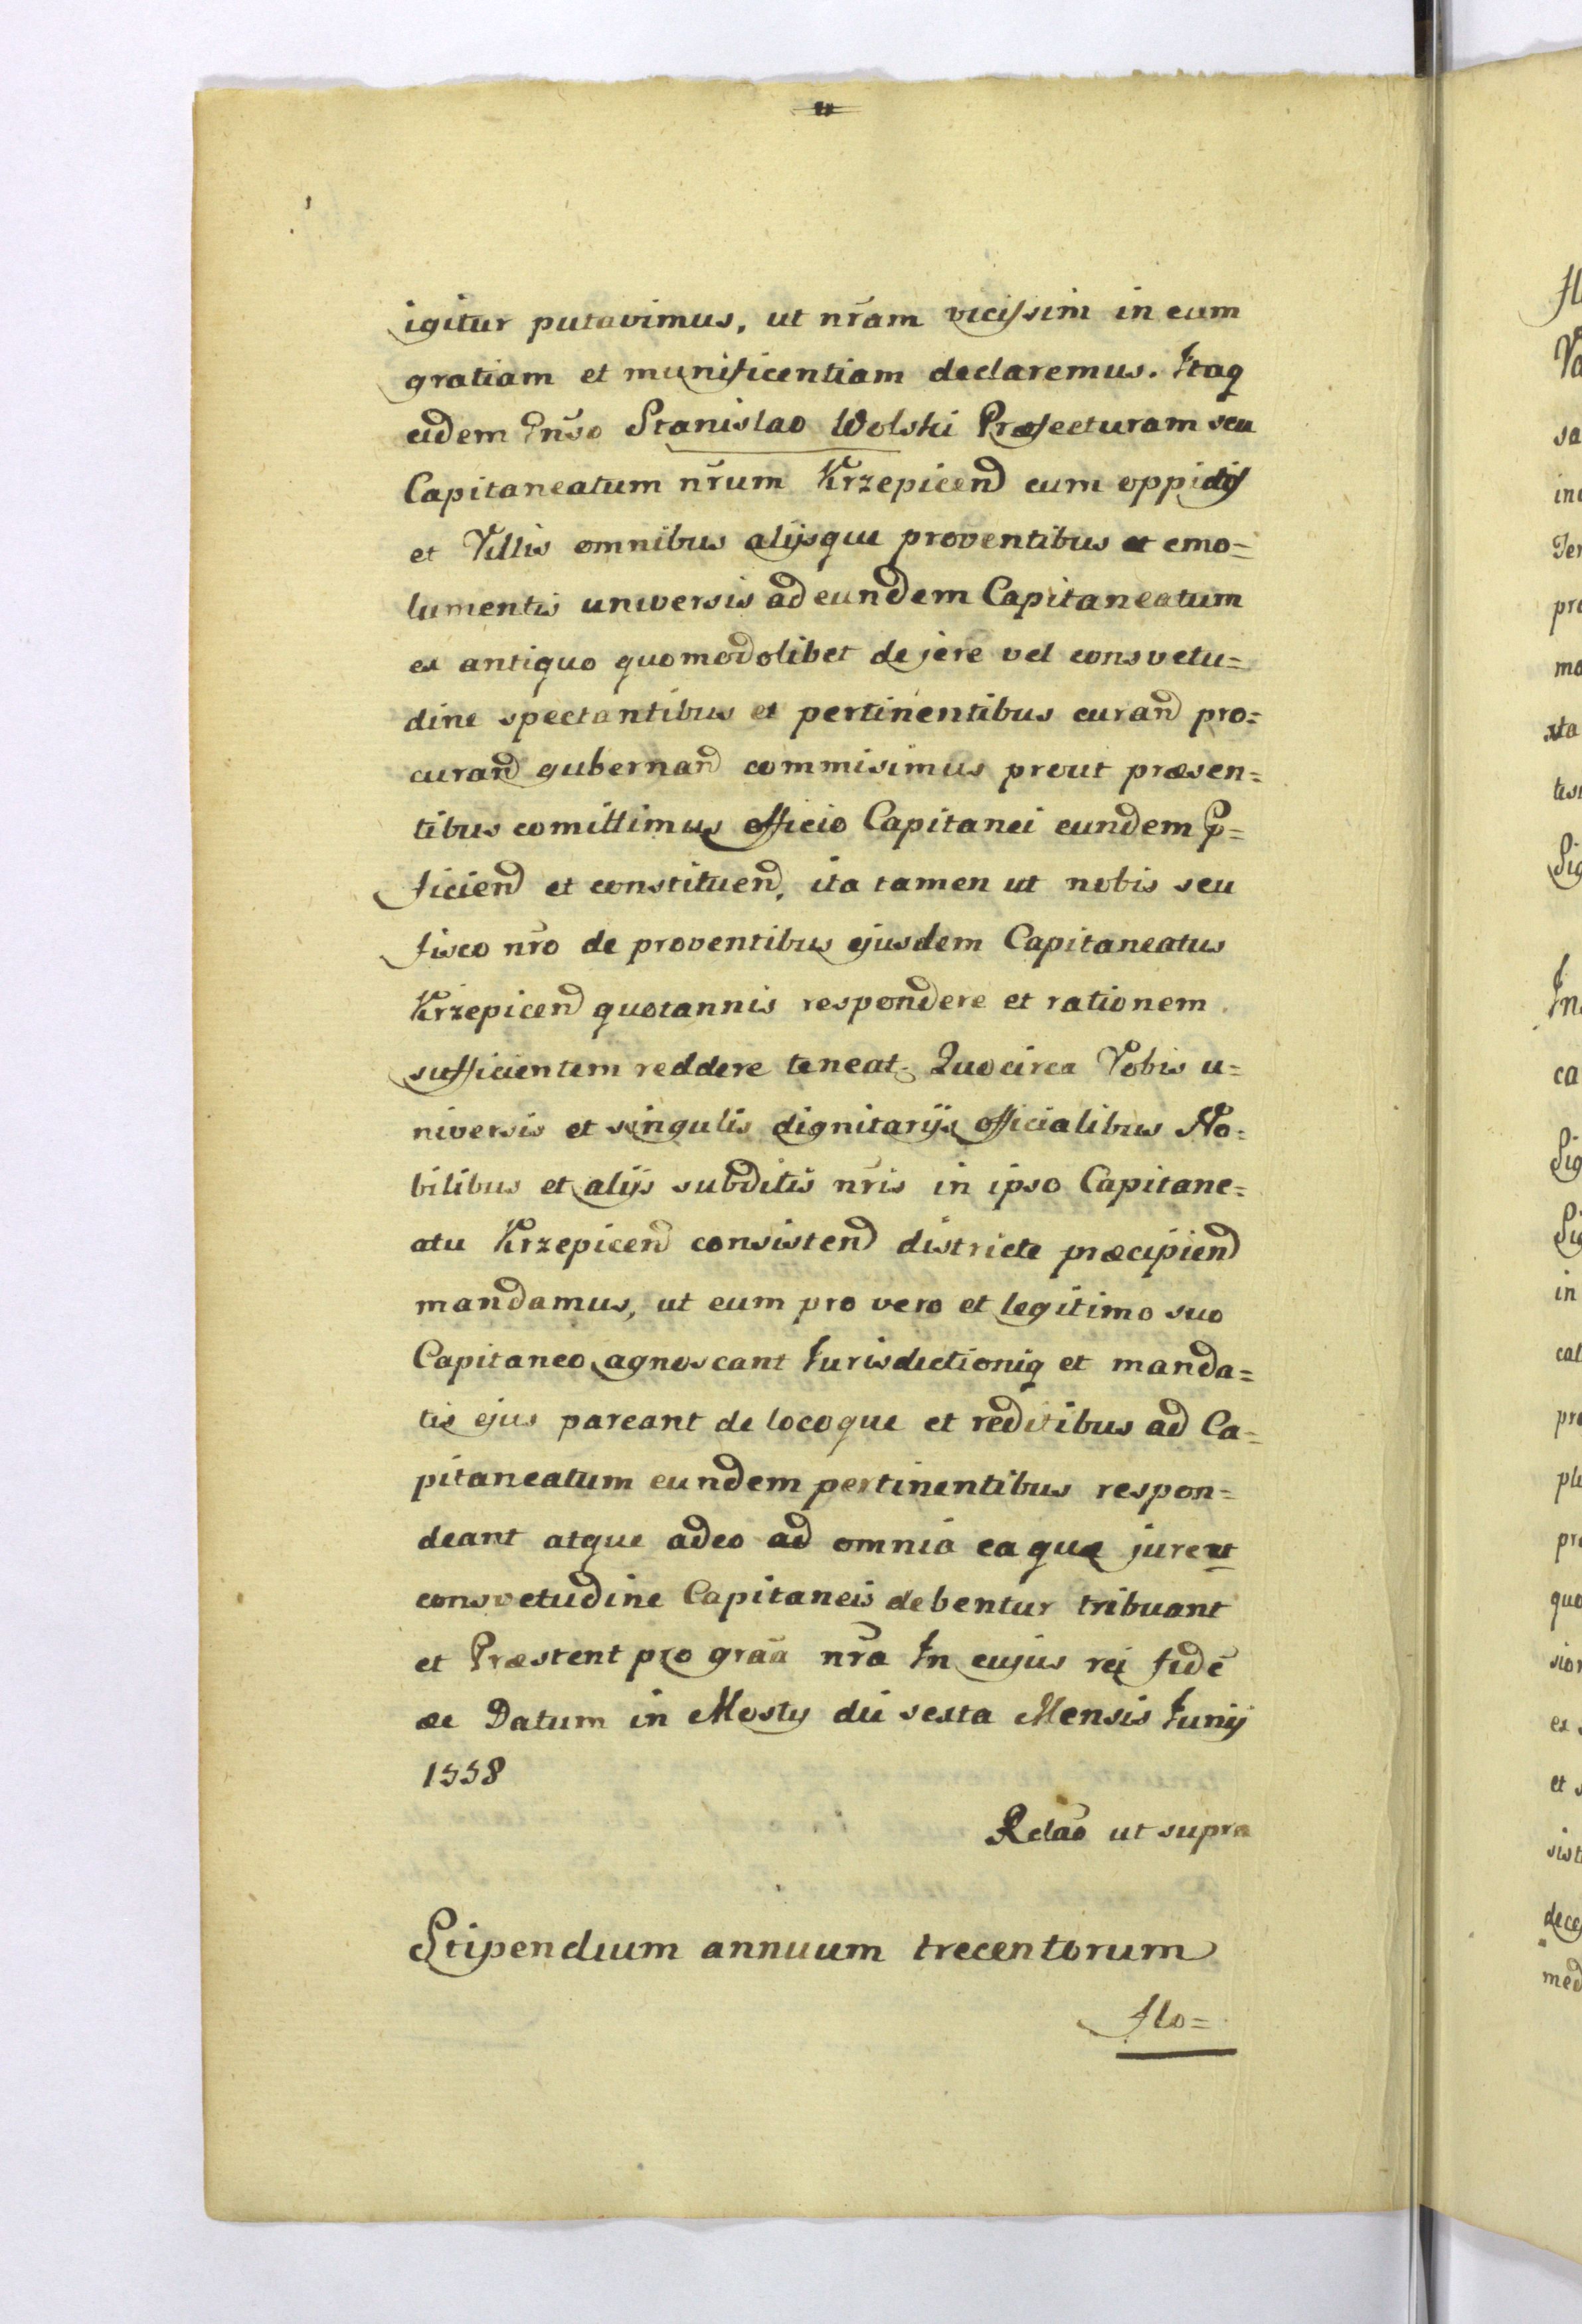 igitur putavimus, ut nr̃am vicissim in eum
gratiam et munificentiam declaremus. Itaq
eidem Gnso Stanislao Wolski Præfecturam seu
Capitaneatum nr̃um Krzepicen̄ cum oppidis
et Villis omnibus alijsque proventibus et emo=
lumentis universis ad eundem Capitaneatum
ex antiquo quomodolibet de jere vel consvetu=
dine spectantibus et pertinentibus curan̄ pro=
curan̄ gubernan̄ commisimus prout præsen=
tibus comittimus officio Capitanei eundem p=
ficien̄ et constituen̄, ita tamen ut nobis seu
fisco nr̃o de proventibus ejusdem Capitaneatus
Krzepicen̄ quotannis respondere et rationem
sufficientem reddere teneat. Quocirca Vobis u=
niversis et singulis dignitarijs officialibus No=
bilibus et alijs subditis nr̃is in ipso Capitane=
atu Krzepicen̄ consisten̄ districte præcipien̄
mandamus, ut eum pro vero et legitimo suo
Capitaneo agnoscant Jurisdictioniq et manda=
tis ejus pareant de locoque et reditibus ad Ca=
pitaneatum eundem pertinentibus respon=
deant atque adeo ad omnia ea quæ jure et
consvetudine Capitaneis debentur tribuant
et Præstent pro gr̃aa nr̃a In cujus rei fidē
ac Datum in Mosty die sexta Mensis Junij
1558
Relao ut supra
Stipendium annuum trecentorum
flo=